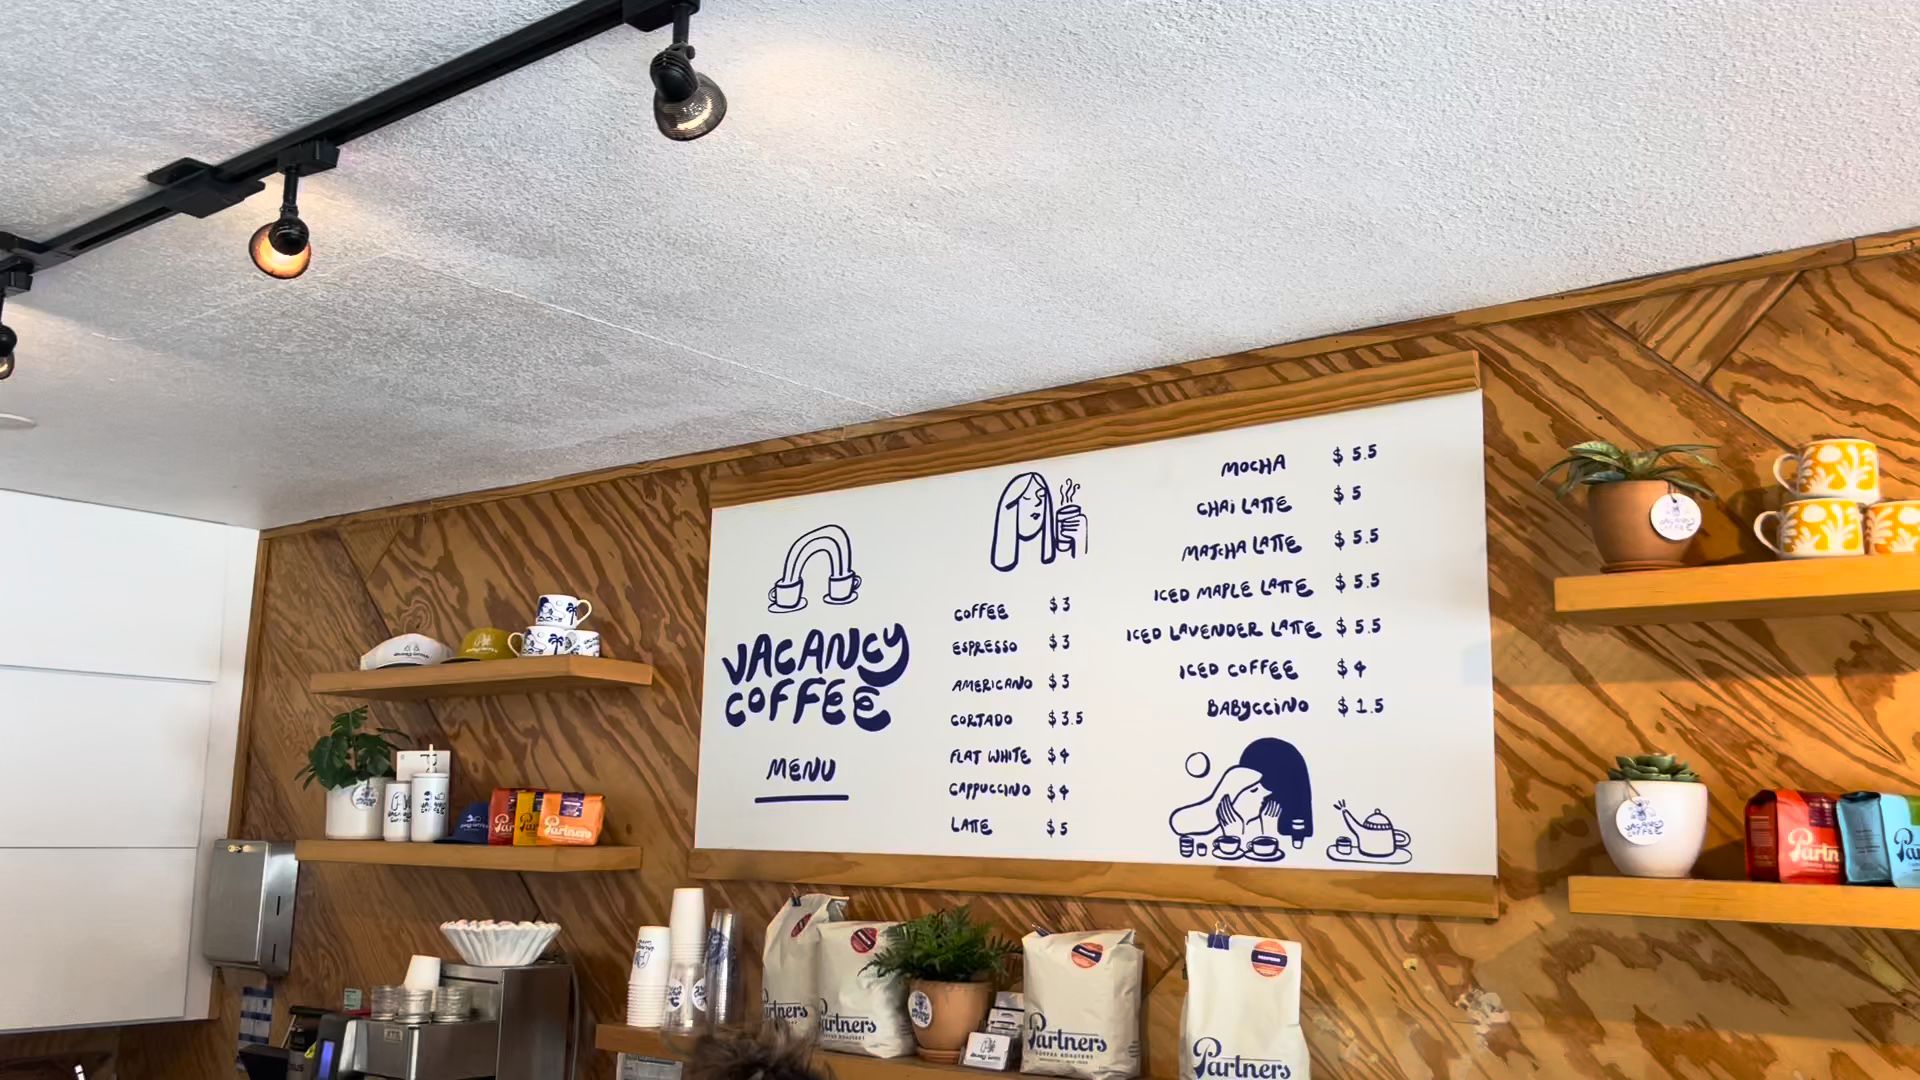 VACANCY
COFFEE
MENU
COFFEE $3
ESPRESSO $3
AMERICANO $3
CORTADO $3.5
FLAT WHITE $4
CAPPUCCINO $4
LATTE $5
MOCHA $5.5
CHAI LATTE $5
MATCHA LATTE $5.5
ICED MAPLE LATTE $5.5
ICED LAVENDER LATTE $5.5
ICED COFFEE $4
BABYCCINO $1.5
VACANCY
COFFEE
Partners
Partners
Partners
COFFEE ROASTERS
Partners
VACANCY
COFFEE